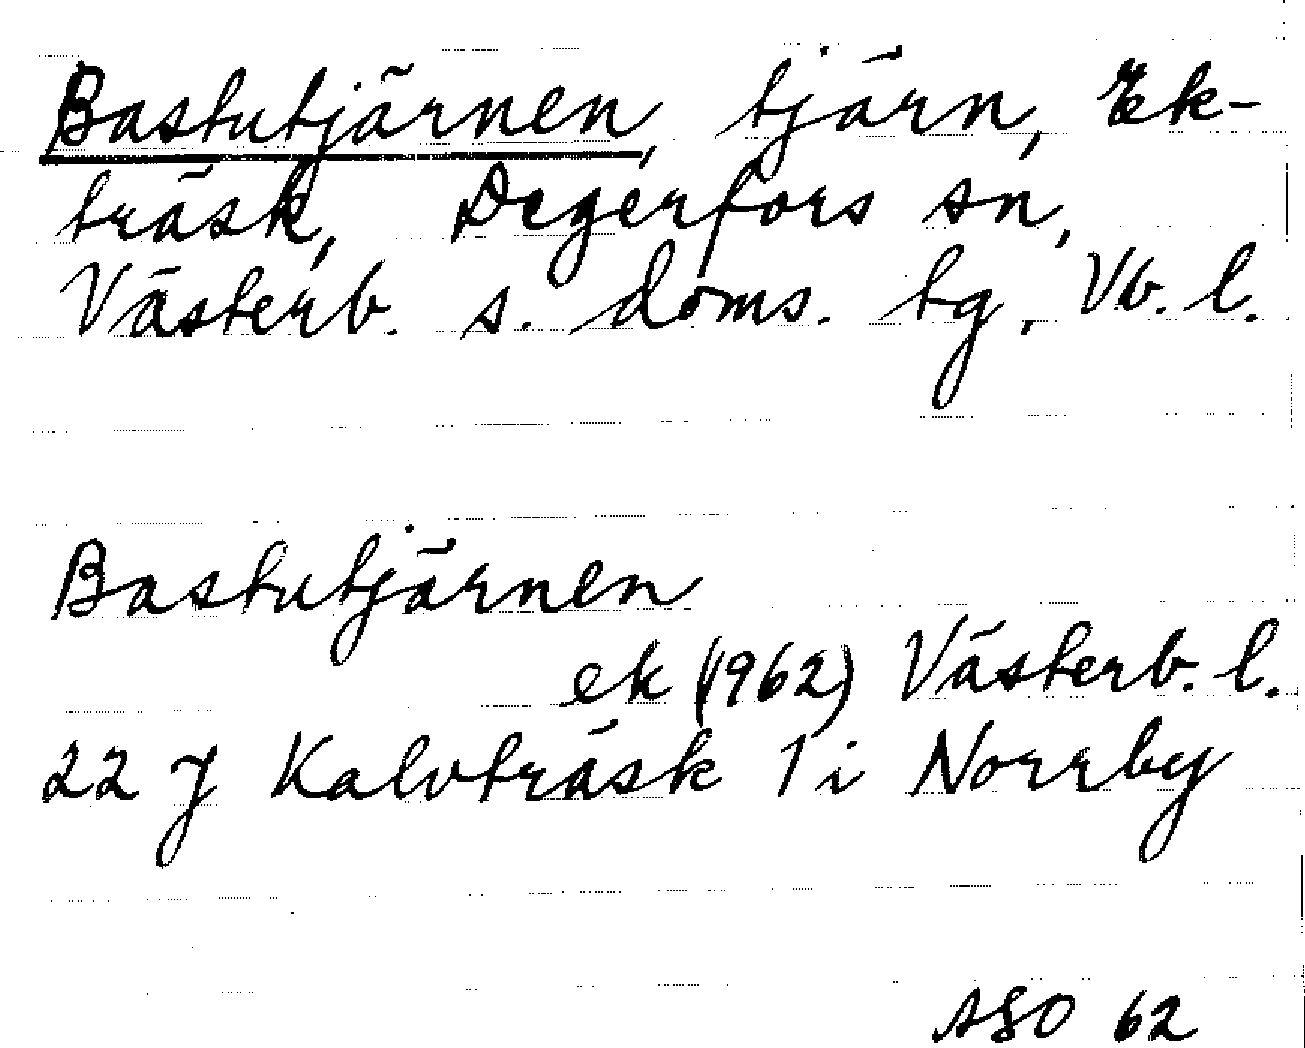 Bastutjärnen, tjärn, Ek-
träsk, Degerfors sn,
Västerb. s. doms. tg, Vb. l.
Bastutjärnen
ek (1962) Västerb. l.
22 J Kalvträsk 1 i Norrby
ASO 62